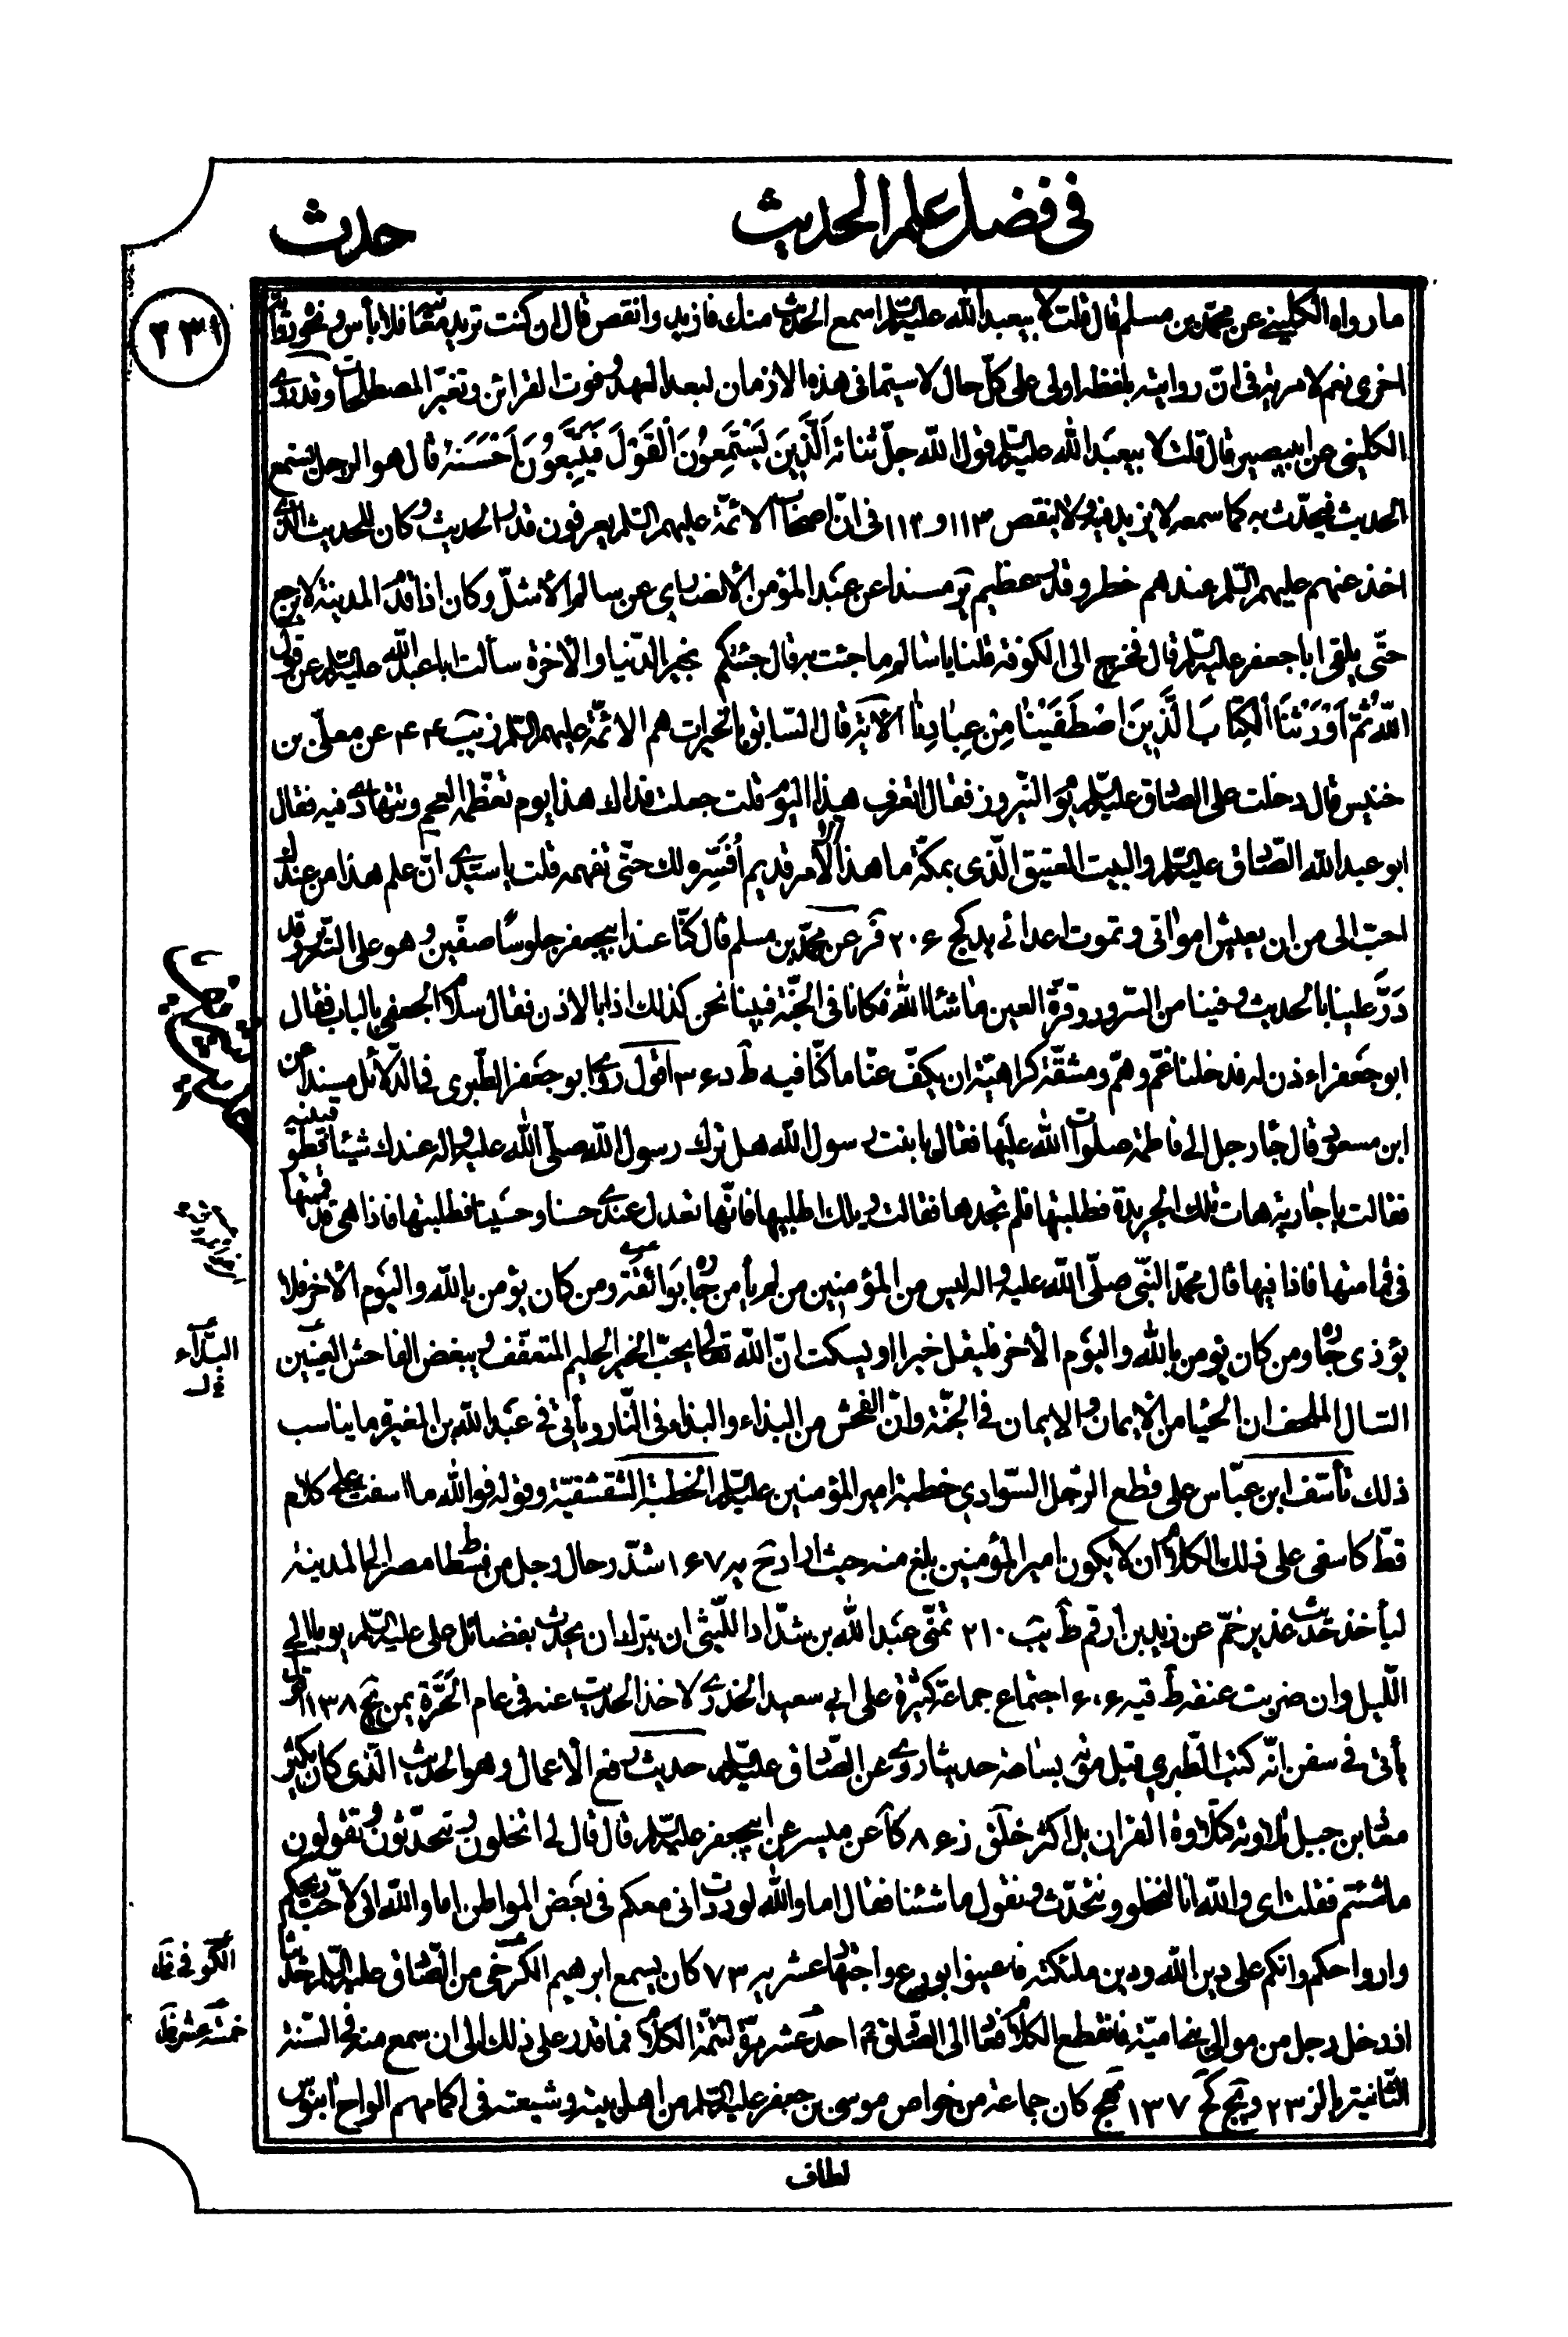 في فضل علم الحديث
حدث
٢٣١
ما رواه الكليني عن محمد بن مسلم قال قلت لابيعبد الله عليه السلم اسمع الحديث منك فازيد وانقص قال ان كنت تريد معانيه فلا بأس ونحوه رواية
اخرى نعم لا مرية في انّ روايته بلفظه اولى على كلّ حال لا سيّما في هذه الازمان لبعد العهد وفوت القرائن وتغيّر المصطلحات وقد روى
الكليني عن ابيبصير قال قلت لابيعبد الله عليه السلم قول الله جلّ ثنائه اَلَّذِينَ يَسْتَمِعُونَ اَلْقَوْلَ فَيَتَّبِعُونَ اَحْسَنَهُ قال هو الرجل يستمع
الحديث فيحدّث به كما سمعه لا يزيد فيه ولا ينقص ١١٣ و ١١٢ في انّ اصحاب الائمّة عليهم السلم يعرفون قدر الحديث وكان للحديث الذي
اخذ عنهم عليهم السّلم عندهم خطر وقدر عظيم بر مسندا عن عبد المؤمن الأنصاري عن سالم الأشلّ وكان اذا قدم المدينة لا يرجع
حتّى يلقى ابا جعفر عليه السلم قال فخرج الى الكوفة قلنا يا سالم ما جئت به قال جئتكم بخير الدّنيا والآخرة سألت ابا عبد الله عليه السلم عن قول
اللّه ثُمَّ اَوْرَثْنَا اَلْكِتَابَ الَّذِينَ اصْطَفَيْنَا مِنْ عِبَادِنَا الآية قال السّابق بالخيرات هم الائمّة عليهم السّلم ز يب ۴۴ عن معلّى بن
خنيس قال دخلت على الصّادق عليه السلم يوم النّيروز فقال اتعرف هذا اليوم قلت جعلت فداك هذا يوم تعظّمه العجم وتتهادى فيه فقال
ابو عبد الله الصّادق عليه السلم والبيت العتيق الّذي بمكّة ما هذا الّا لأمر قديم اُفَسِّره لك حتّى تفهمه قلت يا سيّدي انّ علم هذا من عندك
احبّ الى من ان يعيش امواتي وتموت اعدائي يد كج ٢٠۶ قر عن محمّد بن مسلم قال كنّا عند ابيجعفر جلوسًا صفّين وهو على السّرير وقد
دَرَّ علينا بالحديث وفينا من السّرور وقرّة العين ما شاء الله فكانا في الجنّة فبينا نحن كذلك اذا بالاذن فقال سلام الجعفي بالباب فقال
ابو جعفر اءذن له فدخلنا غمّ وهمّ ومشقّة كراهيّة ان يكفّ عنّا ما كنّا فيه ط د ٣۶ اقول روى ابو جعفر الطّبري في الدّلائل مسندا عن
ابن مسعود قال جاء رجل الى فاطمة صلوات الله عليها فقال يا بنت رسول الله هل ترك رسول الله صلّى الله عليه وآله عندك شيئا تطوقينيه
فقالت يا جارية هات تلك الجريدة فطلبتها فلم تجدها فقالت ويلك اطلبيها فانّها تعدل عندي حسنا وحسينا فطلبتها فاذا هي قد قممتها
في قمامتها فاذا فيها قال محمّد النّبي صلّى الله عليه وآله ليس من المؤمنين من لم يأمن جاره بوائقه ومن كان يؤمن بالله واليوم الآخر فلا
يؤذي جاره ومن كان يؤمن بالله واليوم الآخر فليقل خيرا او يسكت انّ الله تعالى يحبّ الخيّر الحليم المتعفّف ويبغض الفاحش العينين
البذّآء خ ل
السّال الملحف ان الحياء من الإيمان والايمان في الجنّة وانّ الفحش من البذاء والبذاء في النّار ويأتي في عبد الله بن المغيرة ما يناسب
ذلك تأسّف ابن عبّاس على قطع الرّجل السّوادي خطبة امير المؤمنين عليه السلم الخطبة الشقشقيّة وقوله فوالله ما اسفت على كلام
قطّ كاسفي على ذلك الكلام ان لا يكون امير المؤمنين بلغ منه حيث اراد ح يه ١۶٧ شدّ رحال رجل من فسطاط مصر الى المدينة
ليأخذ حديث غدير خمّ عن زيد بن ارقم ط نب ٢١٠ تمنّى عبد الله بن شدّاد اللّيثي ان يترك ان يحدّث بفضائل علي عليه السّلم يوما الى
اللّيل وان ضربت عنقه ط قيه ۶٠۶ اجتماع جماعة كثيرة على ابي سعيد الخدري لاخذ الحديث عنه في عام الحَرَّة يمن مج ١٣٨ اقول
يأتي في سفن انّه كتب الطّبري قبل موته بساعة حديثا روي عن الصّادق عليه السلم حديث رفع الاعمال وهو الحديث الّذي كان يكثر
معاذ بن جبل تلاوته كتلاوة القران بل اكثر خلق ز ۶ ٨ كا عن ميسر عن ابيجعفر عليه السّلم قال قال لي اتخلون وتتحدّثون وتقولون
ما شئتم فقلت اي والله انا لنخلو ونتحدّث ونقول ما شئنا فقال اما والله لوددت اني معكم في بعض المواطن اما والله انّي لاحبّ ريحكم
وارواحكم وانكم على دين الله ودين ملئكته فاعينوا بورع واجتهاد عشر يه ٧٣ كان يسمع ابرهيم الكرخي من الصّادق عليه السّلم حديثا
الكوفي خ ل
اذ دخل رجل من موالي بني امية فانقطع الكلام فعاد الى الصّادق ع احد عشر مرّة لتتمّة الكلام فما قدر على ذلك الى ان سمع منه في السّنة
خمسة عشر خ ل
الثّانية يا لز ٢٣ و يج كح ١٣٧ مهج كان جماعة من خواص موسى بن جعفر عليه السّلم من اهل بيته وشيعته في اكمامهم الواح ابنوس
لطاف